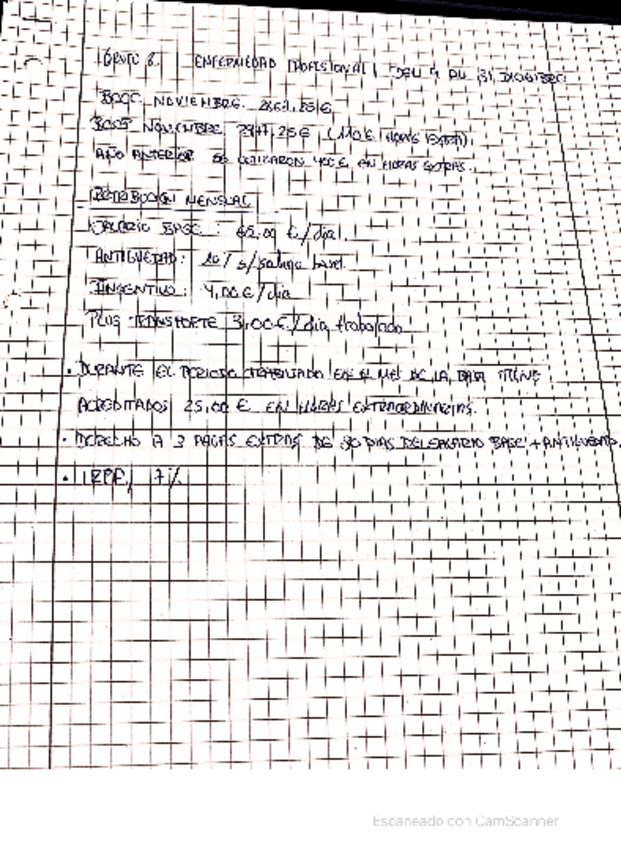 GRUPO 8. ENFERMEDAD PROFESIONAL DEL 9 AL 31 DICIEMBRE
BCCC NOVIEMBRE
BCCP NOVIEMBRE 2947,25€ (110€ HORAS EXTRA).
AÑO ANTERIOR SE COTIZARON 400€ EN HORAS EXTRAS.
RETRIBUCIÓN MENSUAL
SALARIO BASE: 65,00 €/día
ANTIGÜEDAD: s/salario base.
INCENTIVO: 4,00€/día
PLUS TRANSPORTE 3,00€/día trabajado
• DURANTE EL PERIODO TRABAJADO EN EL MES DE LA BAJA TIENE
ACREDITADOS 25,00 € EN HORAS EXTRAORDINARIAS.
• DERECHO A 3 PAGAS EXTRAS DE 30 DIAS DEL SALARIO BASE + ANTIGUEDAD.
• IRPF, 7%
Escaneado con CamScanner